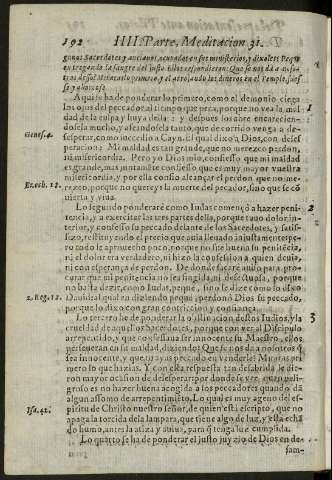 192 IIII Parte, Meditacion 31.
gonos Sacerdotes y ancianos, acusados en sus ministerios, y dixoles: Peque
entregando la sangre del justo. Ellos respondieron: Que se nos da a noso-
tros desso? Miraraslo primero, y el arrojando los dineros en el Templo, fuesse
y ahorcose.
Aqui se ha de ponderar lo primero, como el demonio ciega
los ojos del peccador al tiempo que peca, porque no vea la mal
dad de la culpa y huya della: y despues los abre encarecien-
dosela mucho, y afeandosela tanto, que de corrido venga a de-
sesperar, como sucedio a Cayn. El qual dixo a Dios, con deses-
peracion: Mi maldad es tan grande, que no merezco perdon,
ni misericordia. Pero yo Dios mio, confiesso que mi maldad
es grande, mas juntamente confiesso que es muy mayor vuestra
misericordia, y por ella confio alcançar el perdon que no me-
rezco, porque no quereys la muerte del pecador, sino que se cō
uierta y viua.
Lo segundo ponderarè como Iudas començò a hazer peni-
tencia, y a exercitar las tres partes della, porque tuuo dolor in-
terior, y confesso su peccado delante de los Sacerdotes, y satisfi-
zo, restituyendo el precio que auia lleuado injustamente: pe-
ro todo le aprouecho poco, porque no fue buena su penitēcia,
ni el dolor era verdadero, ni hizo la confession a quien deuia,
ni con esperança de perdon. De donde sacarè auiso para pro-
curar que mi penitencia no sea fingida, ni defectuosa, porque
no basta dezir, como Iudas, peque, sino se dize como lo dixo
Dauid, al qual en diziendo peque, perdonò Dios su peccado,
porque lo dixo con gran contricion y confiança.
Lo tercero he de ponderar la obstinacion destos Iudios, y la
crueldad de aquellos Sacerdotes, porque con ver al Discipulo
arrepentido, y que confessaua ser innocente su Maestro, ellos
perseueran en su maldad, diziendo: Que se nos da a nosotros q̄
sea innocente, y que
mero lo que hazias. Y con esta respuesta tan desabrida le die-
ron mayor occasion de desesperar: por donde se vee quan peli-
groso es no hazer buena acogida a los peccadores quando dā
algun assomo de arrepentimiēto. Lo qual es muy ageno del es-
piritu de Christo nuestro señor, de quien està escripto, que no
apaga la torcida del lampara, que tiene algo de luz, y està echā
do humo, antes la atiza y auiua, para q̄ tenga luz cumplida.
Lo quarto se ha de ponderar el justo juyzio de Dios en de-
sam-
Genes. 4.
Ezech. 18.
2. Reg. 12.
Isa. 42.
1
2
3